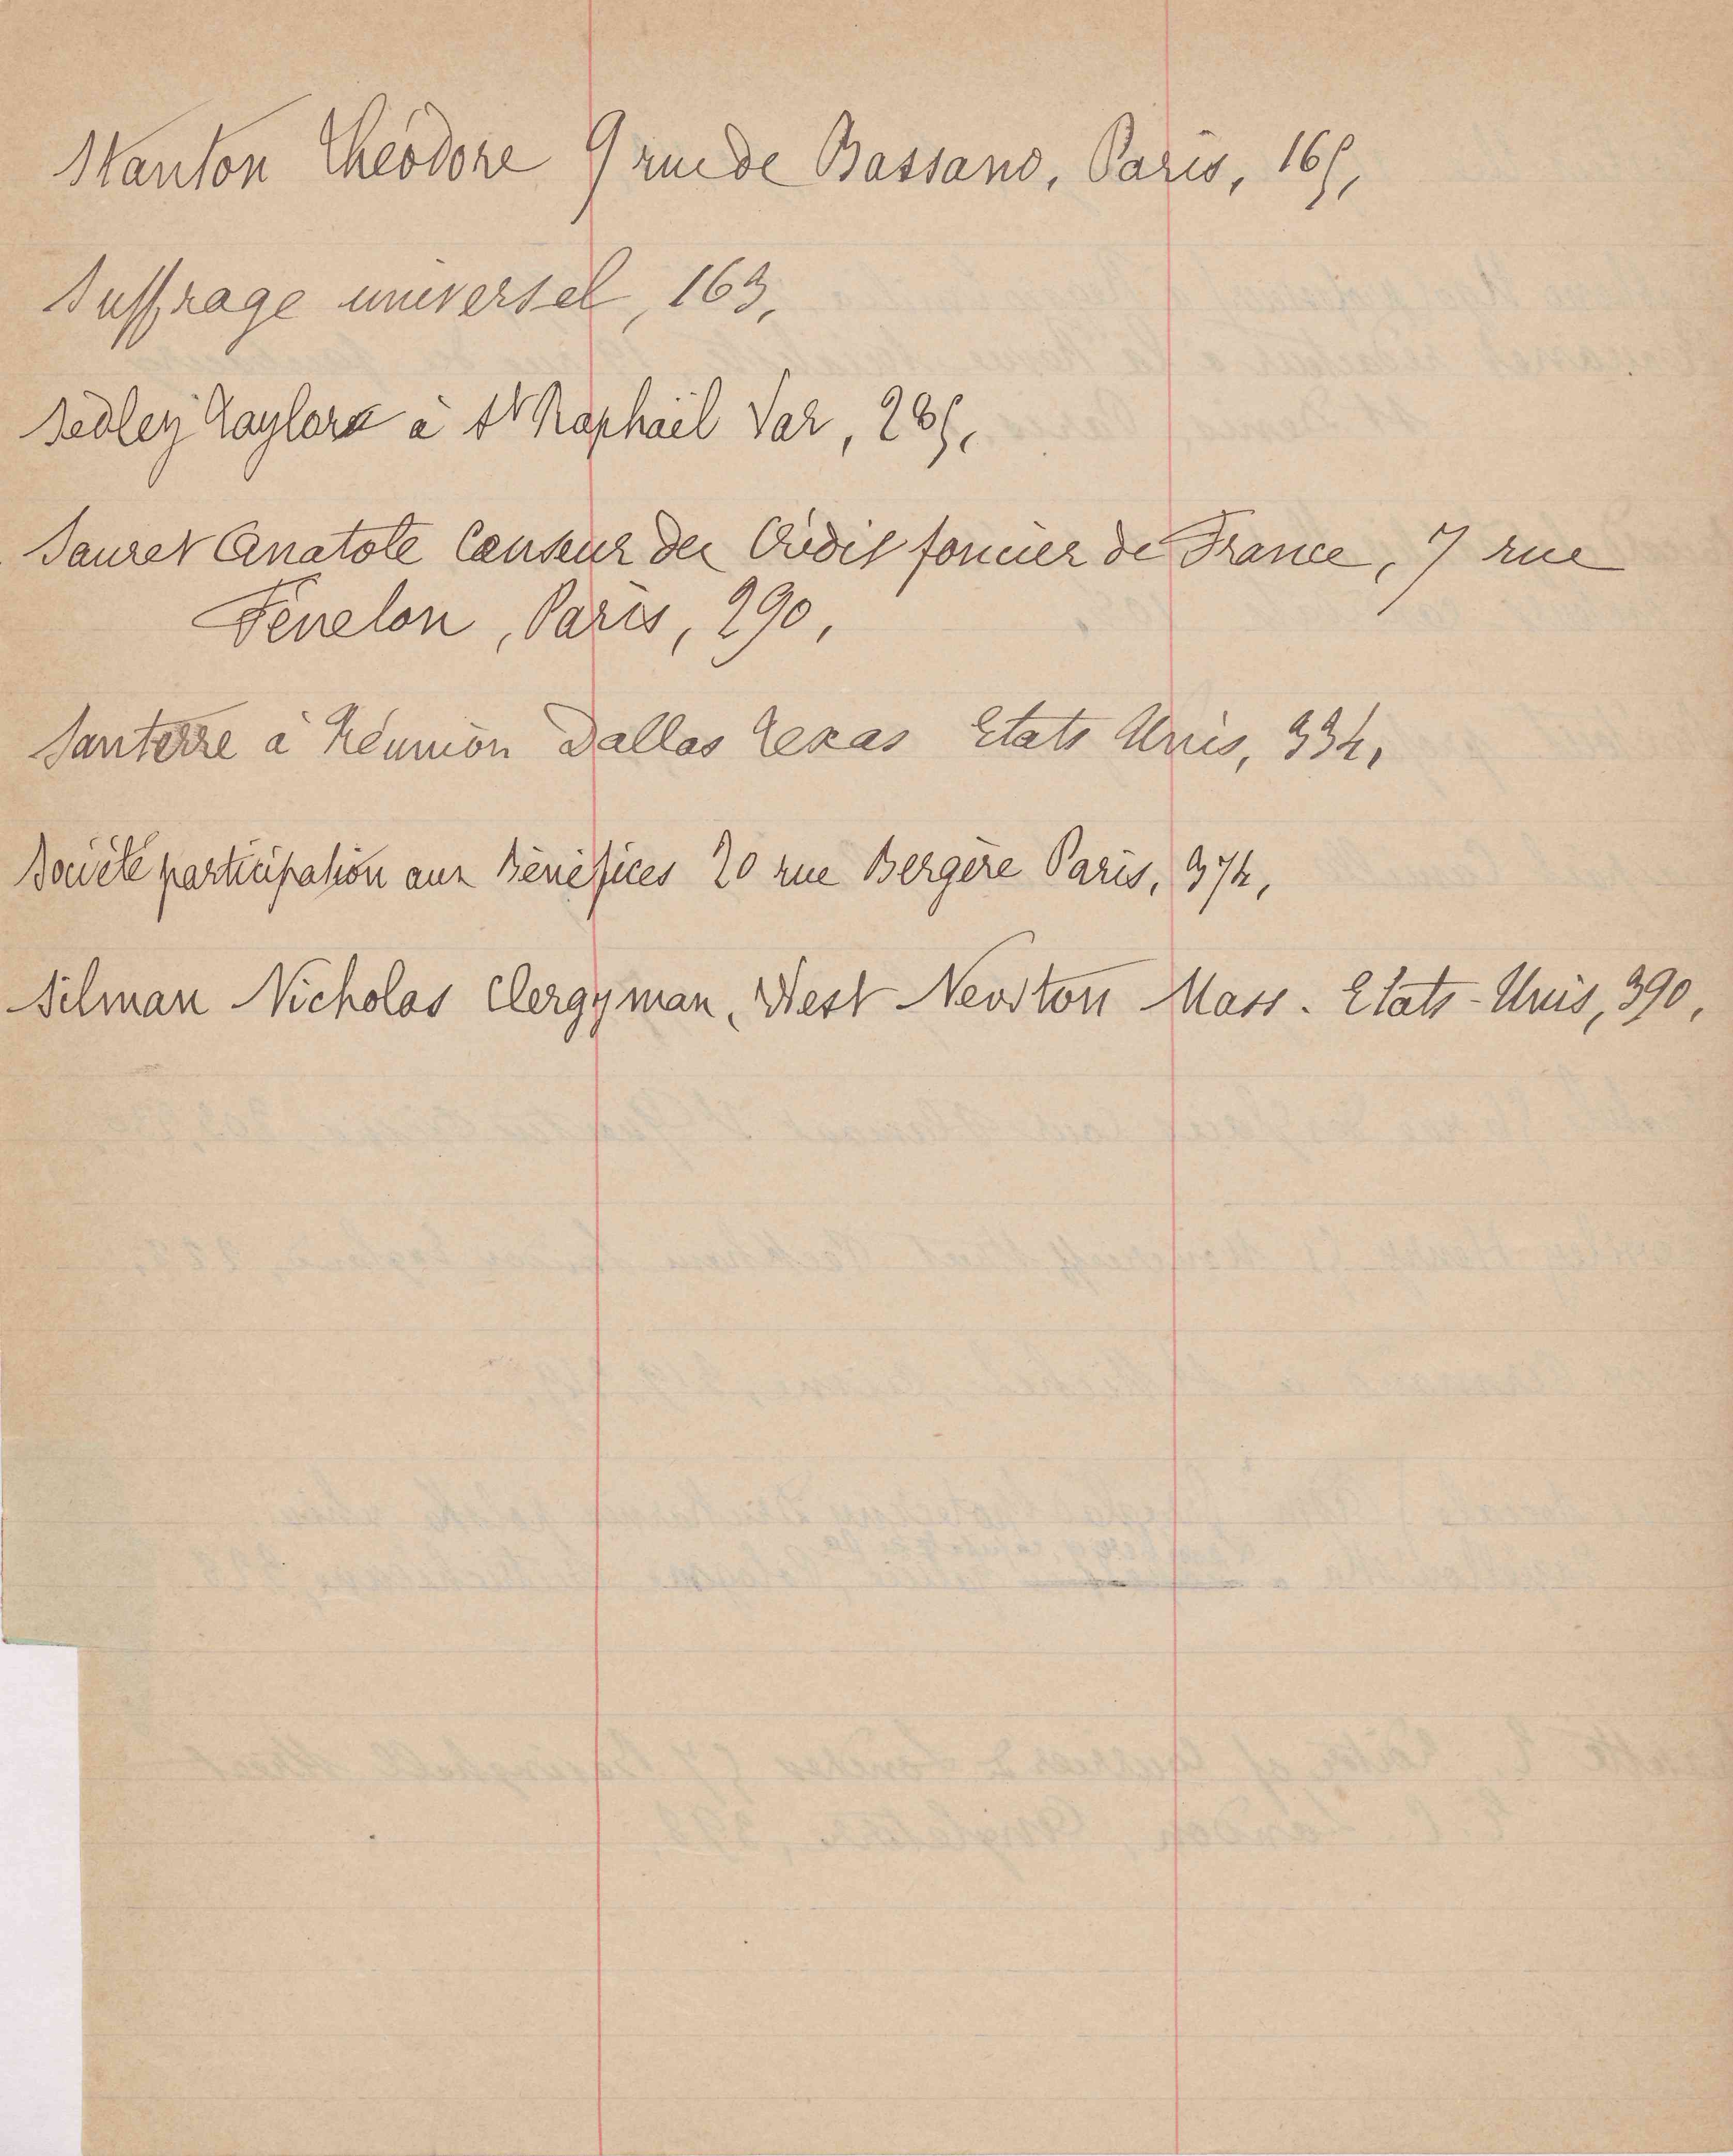 Stanton Theodore 9 rue de Bassano, Paris, 165,
Suffrage universel, 163,
Sedley Taylora à St Raphaël Var, 285,
Sauret Anatole Censeur der Crédit foncier de France, 7 rue
Fenelon, Paris, 290,
Santerre à Réunion Dallas Texas Etats Unis, 334,
Société participation aux Bénéfices 20 rue Bergère Paris, 374,
Silman Nicholas Clergyman, West Newton Mass. Etats-Unis, 390,